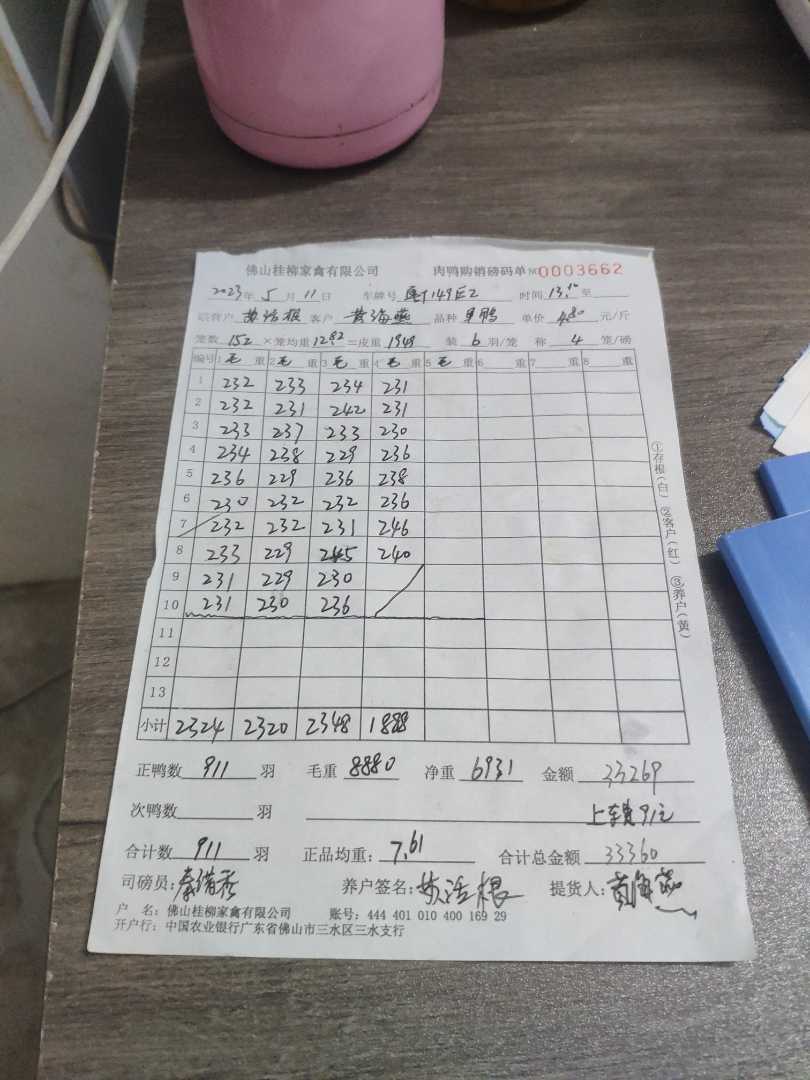 佛山桂柳家禽有限公司 肉鸭购销磅码单 NO 0003662
2023年 5月 11日 车牌号 149E2 时间 13.10 至
客户 黄海燕 品种 单价 4.80 元/斤
笼数 152 ×笼均重 12.82 =皮重 1949 装 6 羽/笼 称 4 笼/磅
编号 1 毛 重 2 毛 重 3 毛 重 4 毛 重 5 毛 重 6 重 7 重 8 重
1 232 233 234 231
2 232 231 242 231
3 233 237 233 230
4 234 238 229 236
5 236 229 236 238
6 230 232 232 236
7 232 232 231 246
8 233 229 245 240
9 231 229 230
10 231 230 236
11
12
13
小计 2324 2320 2348 1888
正鸭数 911 羽 毛重 8880 净重 6931 金额 33269
次鸭数 羽 上车费91元
合计数 911 羽 正品均重: 7.61 合计总金额 33360
司磅员: 养户签名: 提货人: 黄海燕
户 名: 佛山桂柳家禽有限公司 账号: 444 401 010 400 169 29
开户行: 中国农业银行广东省佛山市三水区三水支行
①存根(白) ②客户(红) ③养户(黄)